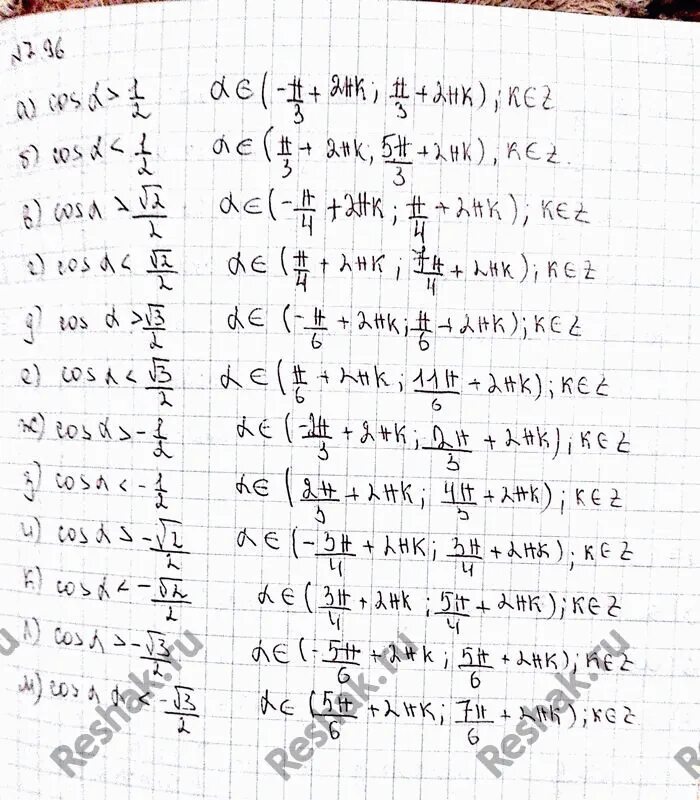 №7.96
а) cos α > 1/2 α ∈ (-π/3 + 2πк; π/3 + 2πк); к ∈ Z
б) cos α < 1/2 α ∈ (π/3 + 2πк, 5π/3 + 2πк), к ∈ Z.
в) cos α > √2/2 α ∈ (-π/4 + 2πк; π/4 + 2πк); к ∈ Z
г) cos α < √2/2 α ∈ (π/4 + 2πк; 7π/4 + 2πк); к ∈ Z
д) cos α > √3/2 α ∈ (-π/6 + 2πк; π/6 + 2πк); к ∈ Z
е) cos α < √3/2 α ∈ (π/6 + 2πк; 11π/6 + 2πк); к ∈ Z
ж) cos α > -1/2 α ∈ (-2π/3 + 2πк; 2π/3 + 2πк), к ∈ Z
з) cos α < -1/2 α ∈ (2π/3 + 2πк; 4π/3 + 2πк); к ∈ Z
и) cos α > -√2/2 α ∈ (-3π/4 + 2πк; 3π/4 + 2πк); к ∈ Z
к) cos α < -√2/2 α ∈ (3π/4 + 2πк; 5π/4 + 2πк); к ∈ Z
л) cos α > -√3/2 α ∈ (-5π/6 + 2πк; 5π/6 + 2πк); к ∈ Z
м) cos α < -√3/2 α ∈ (5π/6 + 2πк; 7π/6 + 2πк); к ∈ Z
Reshak.ru
Reshak.ru
Reshak.ru